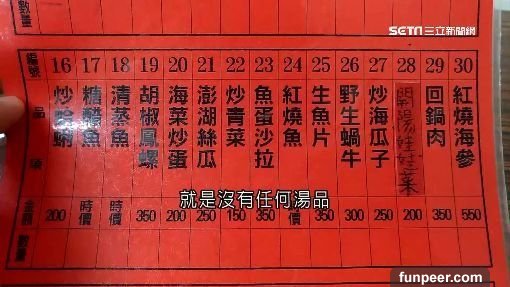 數量
SETN 三立新聞網
編號 16 17 18 19 20 21 22 23 24 25 26 27 28 29 30
品項
炒蛤蜊
糖醋魚
清蒸魚
胡椒鳳螺
海菜炒蛋
澎湖絲瓜
炒青菜
魚蛋沙拉
紅燒魚
生魚片
野生蝸牛
炒海瓜子
開陽娃娃菜
回鍋肉
紅燒海參
就是沒有任何湯品
金額 200 時價 時價 350 200 250 150 350 價 350 300 250 200 350 550
數量
funpeer.com